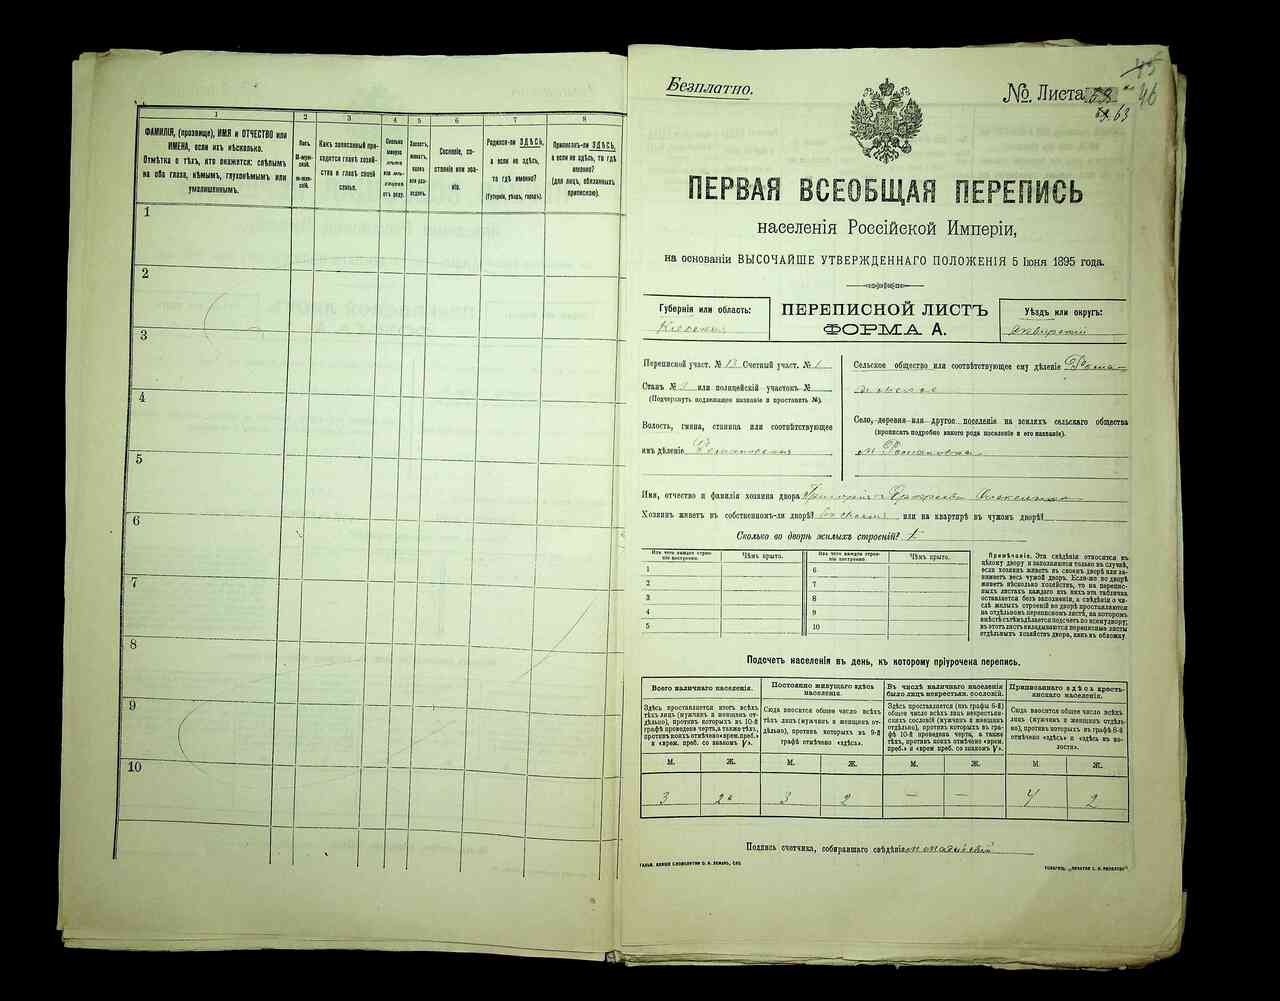 1
2
3
4
5
6
7
8
ФАМИЛІЯ, (прозвище), ИМЯ и ОТЧЕСТВО или
ИМЕНА, если ихъ нѣсколько.
Отмѣтка о тѣхъ, кто окажется: слѣпымъ
на оба глаза, нѣмымъ, глухонѣмымъ или
умалишеннымъ.
Полъ.
М-муж-
ской.
Ж-жен-
скій.
Какъ записанный при-
ходится главѣ хозяй-
ства и главѣ своей
семьи.
Сколько
минуло
лѣтъ
или мѣ-
сяцевъ
отъ роду.
Холостъ,
женатъ,
вдовъ
или раз-
веденъ.
Сословіе, со-
стояніе или зва-
ніе.
Родился-ли ЗДѢСЬ,
а если не здѣсь,
то гдѣ именно?
(Губернія, уѣздъ, городъ).
Приписанъ-ли ЗДѢСЬ,
а если не здѣсь, то гдѣ
именно?
(для лицъ, обязанныхъ
припискою).
1
2
3
4
5
6
7
8
9
10
45
Безплатно.
№ Листа
46
63
ПЕРВАЯ ВСЕОБЩАЯ ПЕРЕПИСЬ
населенія Россійской Имперіи,
на основаніи ВЫСОЧАЙШЕ УТВЕРЖДЕННАГО ПОЛОЖЕНІЯ 5 Іюня 1895 года.
Губернія или область:
Кіевская
ПЕРЕПИСНОЙ ЛИСТЪ
ФОРМА А.
Уѣздъ или округъ:
Сквирскій
Переписной участ. № 13 Счетный участ. № 1
Станъ № или полицейскій участокъ №
(Подчеркнуть подлежащее названіе и проставить №).
Волость, гмина, станица или соотвѣтствующее
имъ дѣленіе Романовская
Сельское общество или соотвѣтствующее ему дѣленіе Рома-
новское
Село, деревня или другое поселеніе на земляхъ сельскаго общества
(прописать подробно какого рода поселеніе и его названіе).
м. Романовка
Имя, отчество и фамилія хозяина двора Григорій
Хозяинъ живетъ въ собственномъ-ли дворѣ? или на квартирѣ въ чужомъ дворѣ?
Сколько во дворѣ жилыхъ строеній?
Изъ чего каждое строе-
ніе построено.
Чѣмъ крыто.
Изъ чего каждое строе-
ніе построено.
Чѣмъ крыто.
1
2
3
4
5
6
7
8
9
10
Примѣчаніе. Эта свѣдѣнія относятся къ
цѣлому двору и заполняются только въ случаѣ,
если хозяинъ живетъ въ своемъ дворѣ или за-
нимаетъ весь чужой дворъ. Если-же во дворѣ
живетъ нѣсколько хозяйствъ, то на перепис-
ныхъ листахъ каждаго изъ нихъ эта табличка
оставляется безъ заполненія, а свѣдѣнія о чи-
слѣ жилыхъ строеній во дворѣ проставляются
на отдѣльномъ переписномъ листѣ, на которомъ
вмѣстѣ съ тѣмъ дѣлается подсчетъ по всему двору;
въ этотъ листъ вкладываются переписные листы
отдѣльныхъ хозяйствъ двора, какъ въ обложку
Подсчетъ населенія въ день, къ которому пріурочена перепись.
Всего наличнаго населенія.
Постоянно живущаго здѣсь
населенія.
Въ числѣ наличнаго населенія
было лицъ некрестьян. сословій.
Приписаннаго здѣсь кресть-
янскаго населенія.
Здѣсь проставляется итогъ всѣхъ
тѣхъ лицъ (мужчинъ и женщинъ от-
дѣльно), противъ которыхъ въ 10-й
графѣ проведена черта, а также тѣхъ,
противъ коихъ отмѣчено «врем. преб.»
и «врем. преб. со знакомъ V».
Сюда вносится общее число всѣхъ
тѣхъ лицъ (мужчинъ и женщинъ от-
дѣльно), противъ которыхъ въ 9-й
графѣ отмѣчено «здѣсь».
Здѣсь проставляется (изъ графы 6-й)
общее число всѣхъ лицъ некрестьян-
скихъ сословій (мужчинъ и женщинъ
отдѣльно), противъ которыхъ въ гра-
фѣ 10-й проведена черта, а также
тѣхъ, противъ коихъ отмѣчено «врем.
преб.» и «врем. преб. со знакомъ V».
Сюда вносится общее число всѣхъ
лицъ (мужчинъ и женщинъ отдѣль-
но), противъ которыхъ въ графѣ 8-й
отмѣчено «здѣсь» и «здѣсь въ во-
лости».
М.
Ж.
М.
Ж.
М.
Ж.
М.
Ж.
3
2
3
2
—
—
4
2
Подпись счетчика, собиравшаго свѣдѣнія